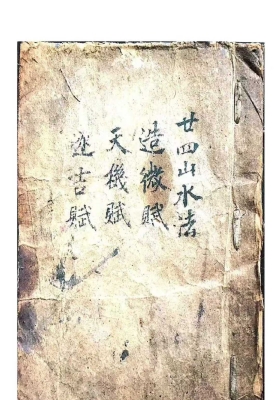 廿四山水法
造微賦
天機賦
遊古賦